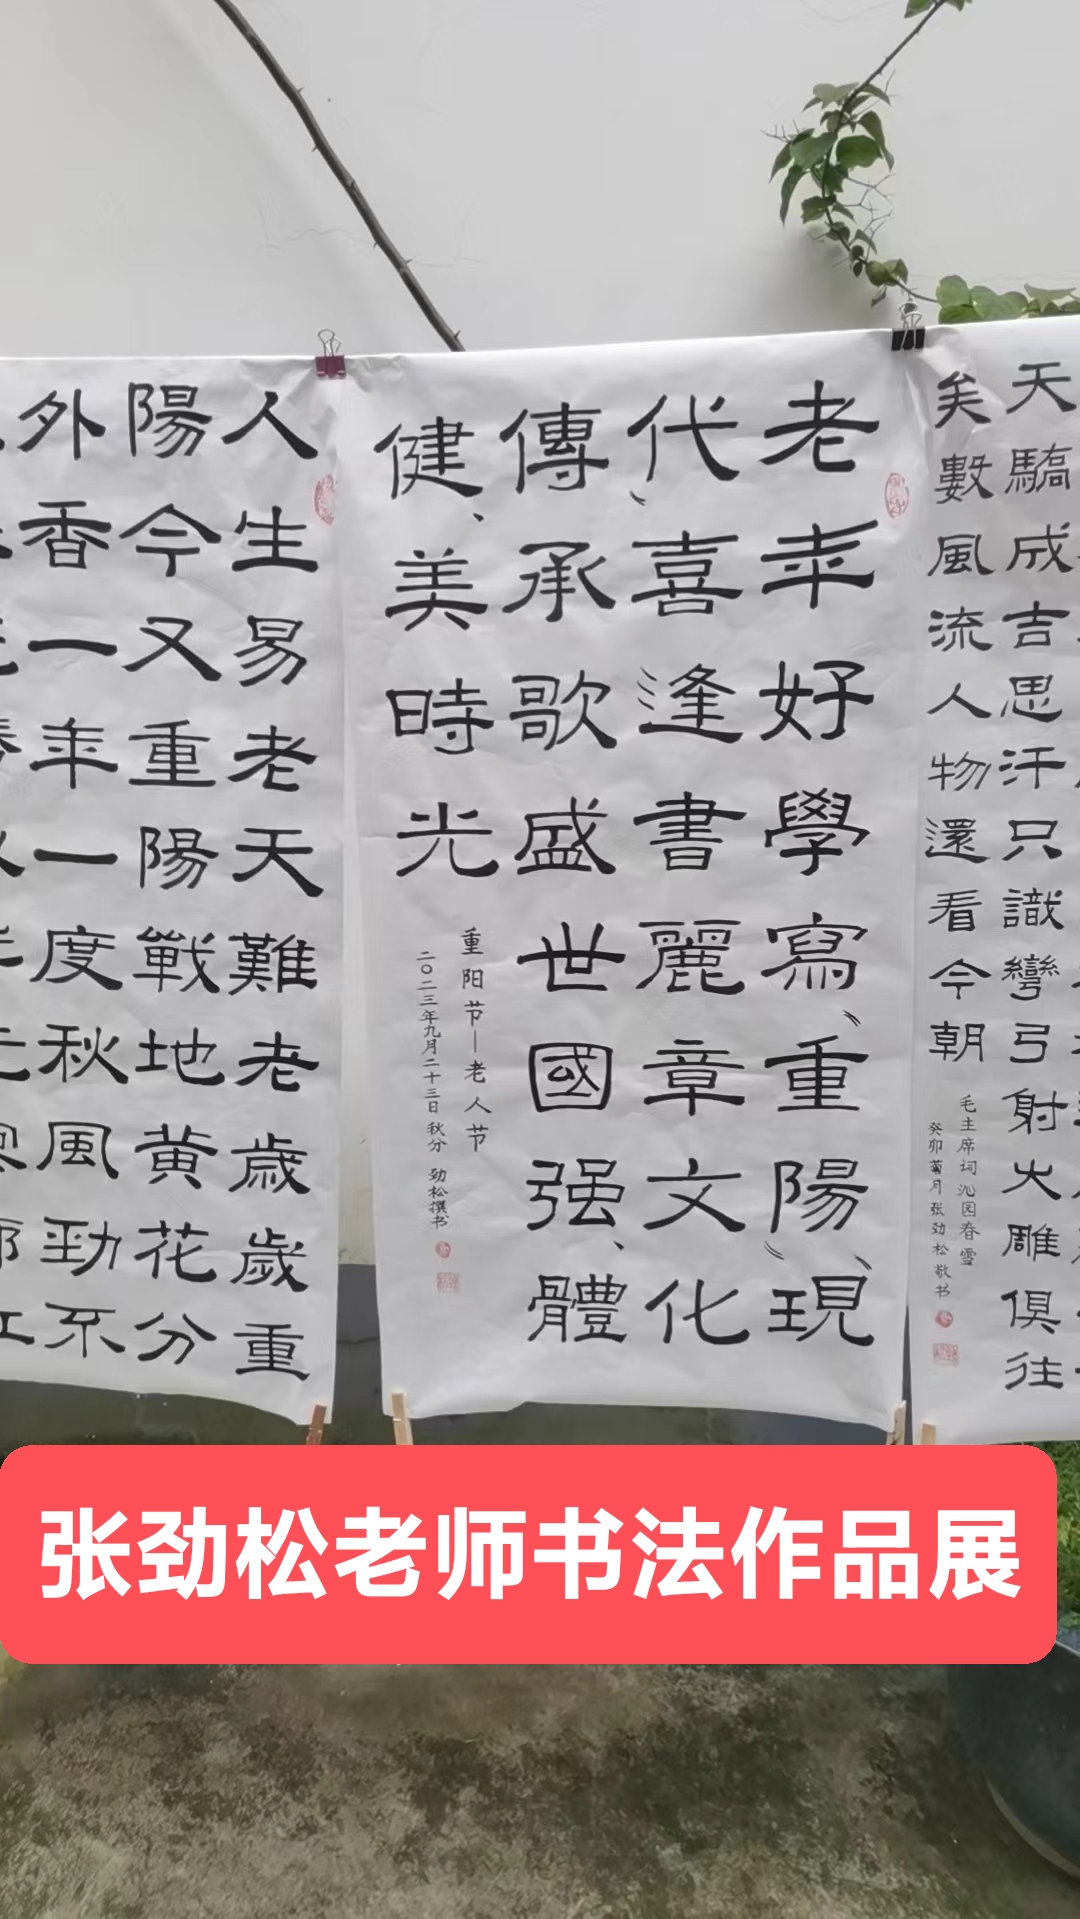 天驕成吉思汗只識彎弓射大雕俱往
矣數風流人物還看今朝
毛主席词沁园春雪
癸卯菊月张劲松敬书
老年好學寫〝重陽〞、現
代、喜逢書麗章文化
傳承歌盛世國强、體
健、美時光
重阳节—老人节
二〇二三年九月二十三日秋分 劲松撰书
人生易老天難老歲歲重
陽今又重陽戰地黄花分
外香一年一度秋風勁不
张劲松老师书法作品展